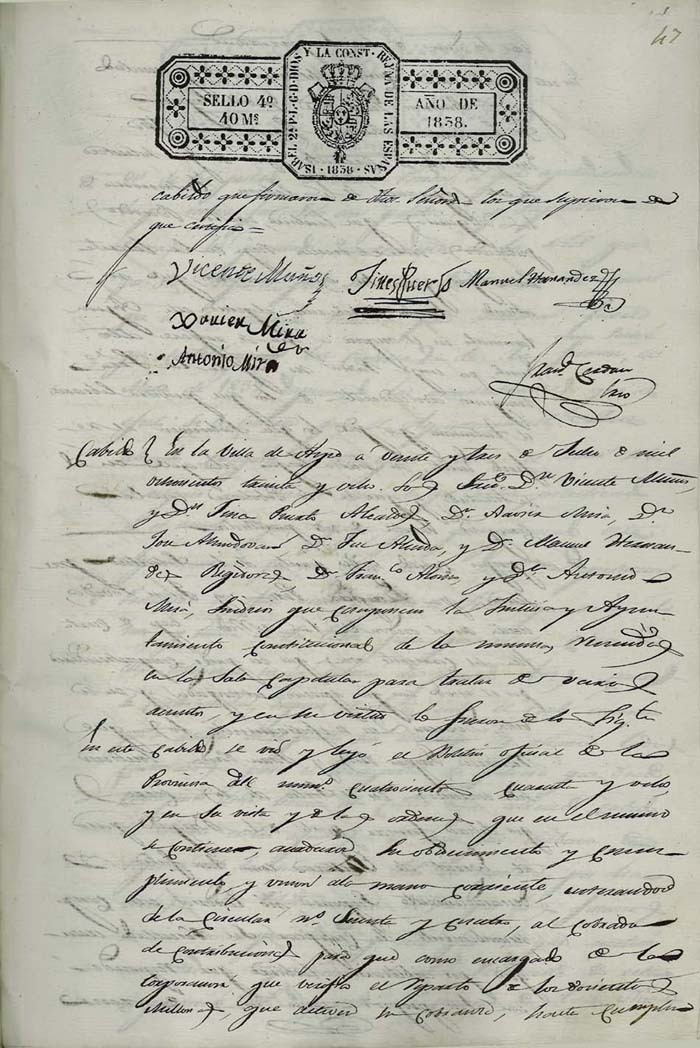 47
SELLO 4º
40 Ms
ISABEL 2ª P. L. G. D. DIOS Y LA CONST. REINA DE LAS ESPAÑAS
1838
AÑO DE
1838.
cabildo que firmaron de dhos Señores los que supieron de
que certifico =
Vicente Muños
Gines Puerto
Manuel Hernandez
Xavier Mira
Antonio Mira
Cabildo En la Villa de Aspe á veinte y tres de Julio de mil
ochocientos treinta y ocho. Los Dn Vicente Muños,
y Dn Gines Puerto Alcaldes, Dn Xavier Mira, Dn
José Almodovar Dn José Alcada, y Dn Manuel Hernan-
dez Regidores, Dn Franco Alonso y Dn Antonio
Mira, Sindicos que componen la Justicia y Ayun-
tamiento Constitucional de la misma, reunidos
en la Sala Capitular para tratar de varios
asuntos, y en su virtud lo hicieron de lo sigte
En este Cabildo se vió y leyó el Boletin oficial de la
Provincia del numo cuatrocientos cuarenta y ocho,
y en su vista y de las ordenes que en el mismo
se contienen, acordaron su obedecimiento y cum-
plimiento, y union de mano corriente, enterandose
de la Circular nº setenta y cuatro, al Cobrador
de contribuciones para que como encargado de la
corporacion que verifica el reparto de los doscientos
Millones, que active la cobranza, hasta cumplir